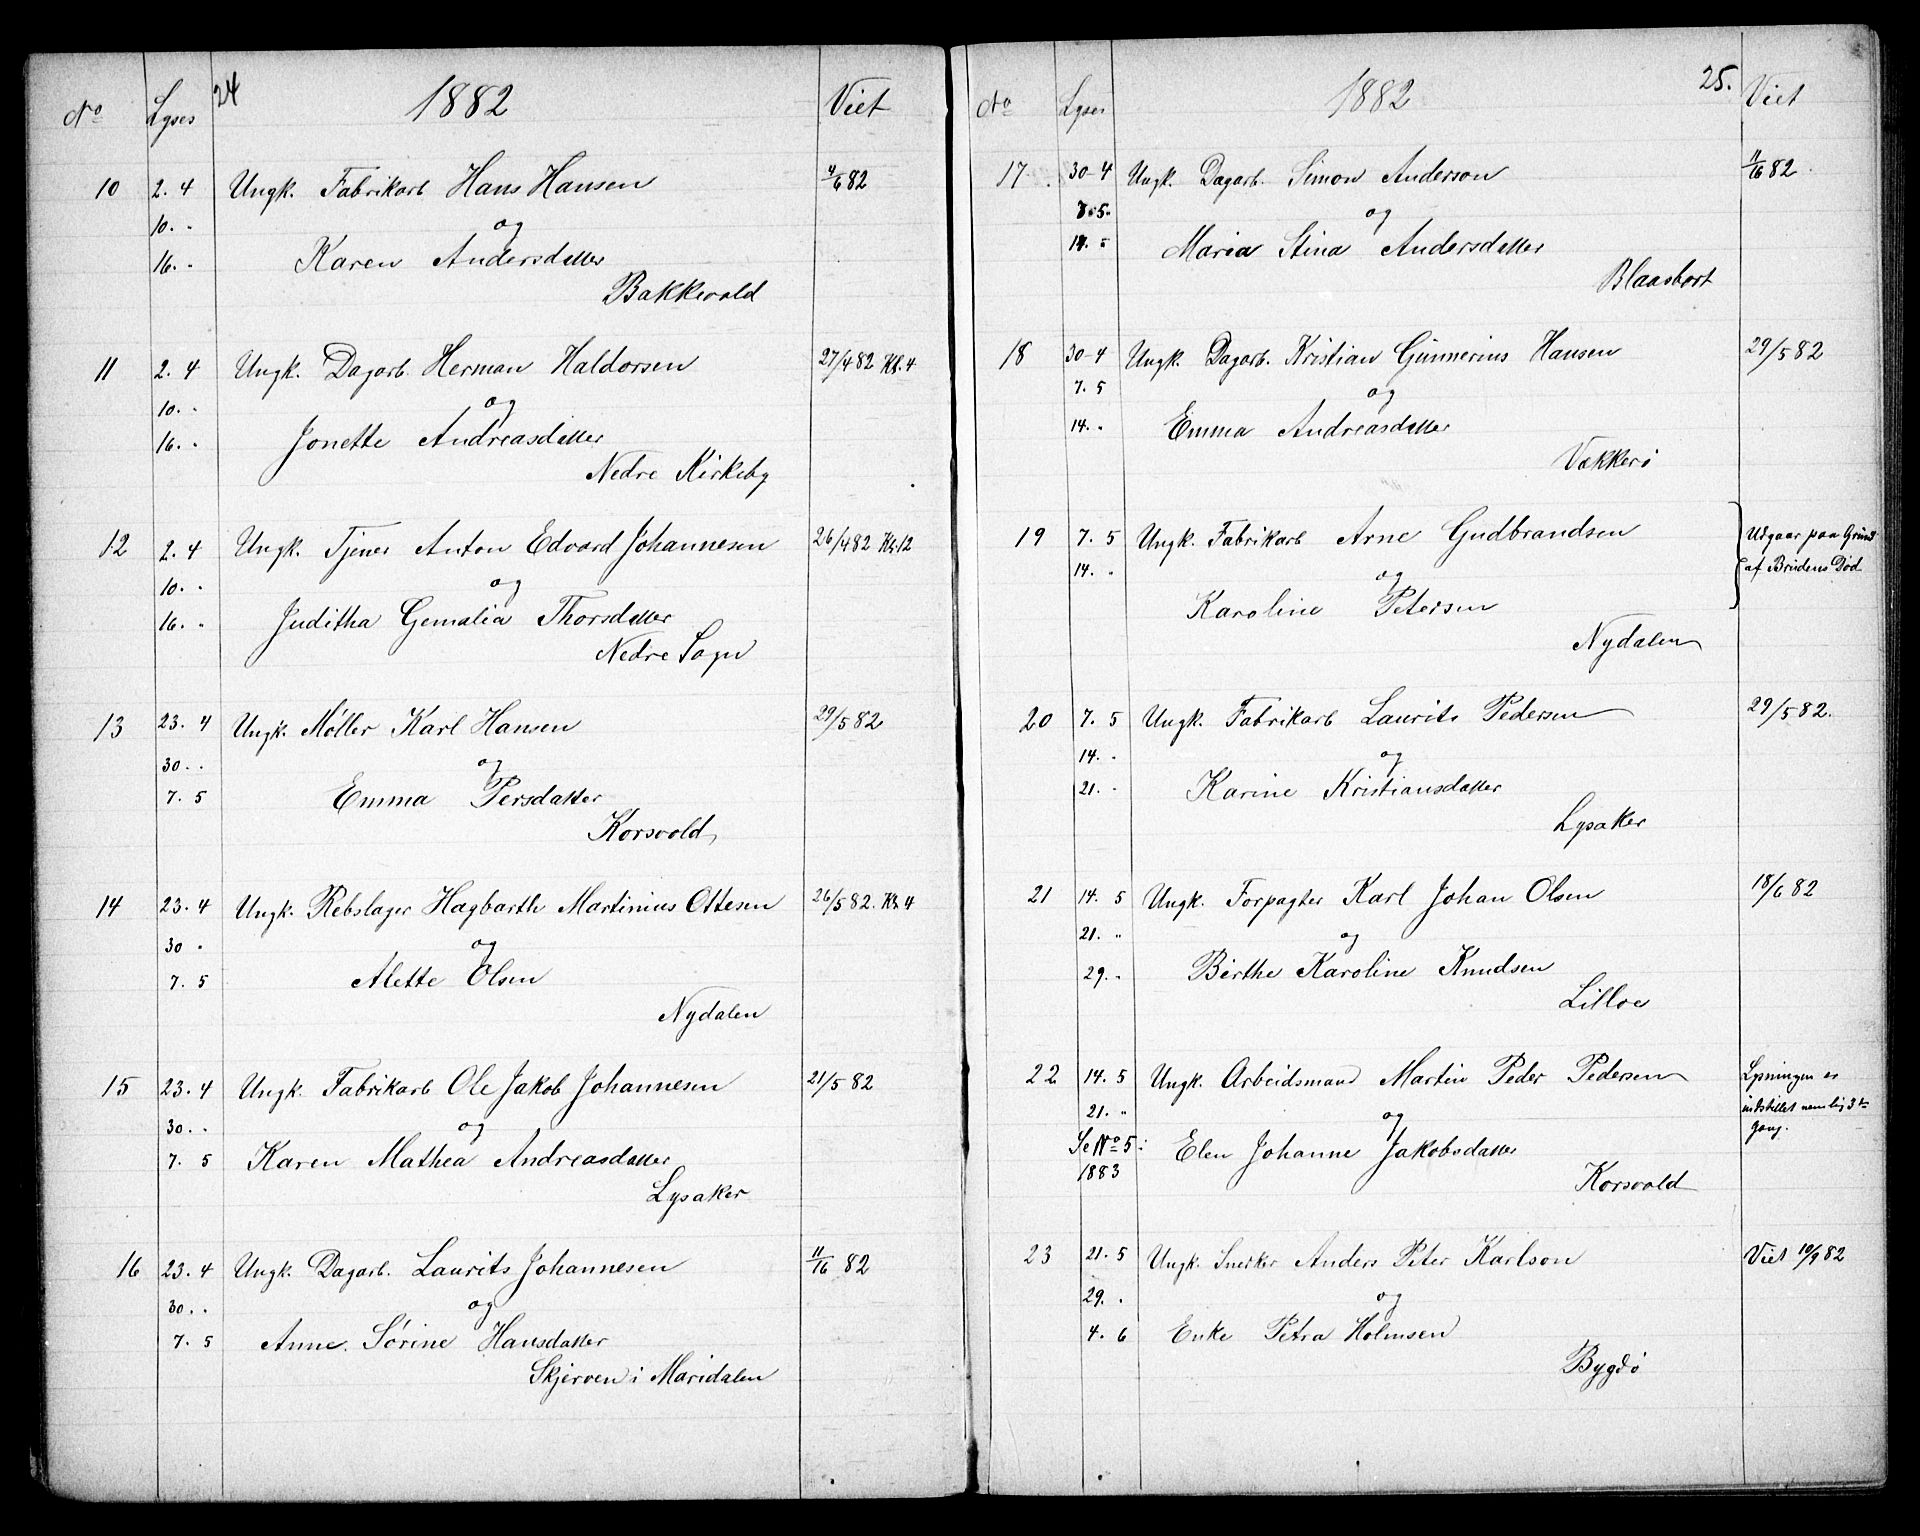 24
No Lyses 1882 Viet
10 2. 4 Ungk. Fabrikarb Hans Hansen 4/6 82
10. " og
16. " Karen Andersdatter
Bakkevold
11 2. 4 Ungk. Dagarb. Herman Haldorsen 27/4 82 Kl. 4
10. " og
16. " Jonette Andreasdatter
Nedre Kirkeby
12 2. 4 Ungk. Tjener Anton Edvard Johannesen 26/4 82 Kl. 12
10. " og
16. " Juditha Gemalia Thorsdatter
Nedre Sogn
13 23. 4 Ungk. Møller Karl Hansen 29/5 82
30. " og
7. 5 Emma Persdatter
Korsvold
14 23. 4 Ungk. Rebslager Hagbarth Martinius Ottesen 26/5 82. Kl. 4
30 " og
7. 5 Alette Olsen
Nydalen
15 23. 4 Ungk. Fabrikarb Ole Jakob Johannesen 21/5 82
30. " og
7. 5 Karen Mathea Andreasdatter
Lysaker
16 23. 4 Ungk. Dagarb. Laurits Johannesen 11/16 82
30. " og
7. 5 Anne Sørine Hansdatter
Skjerven i Maridalen
25.
No Lyses 1882 Viet
17 30-4 Ungk. Dagarb. Simon Anderson 11/16 82
7. 5. og
14. 5 Maria Stina Andersdatter
Blaasbort
18 30-4 Ungk. Dagarb. Kristian Gunnerius Hansen 29/5 82
7. 5 og
14. " Emma Andreasdatter
Vækkerø
19 7. 5 Ungk. Fabrikarb Arne Gudbrandsen Udgaar paa Grund
14. " og af Brudens Død
Karoline Petersen
Nydalen
20 7. 5 Ungk. Fabrikarb Laurits Pedersen 29/5 82.
14. " og
21. " Karine Kristiansdatter
Lysaker
21 14. 5 Ungk. Forpagter Karl Johan Olsen 18/6 82
21. " og
29. " Birthe Karoline Knudsen
Lilloe
22 14. 5 Ungk. Arbeidsmand Martin Peder Pedersen Lysningen er
21. " og indstillet nemlig 3te
Se No 5: Elen Johanne Jakobsdatter gang.
1883
Korsvold
23 21. 5 Ungk. Snekker Anders Peter Karlson Viet 10/9 82
29. " og
4. 6 Enke Petra Holmsen
Bygdø